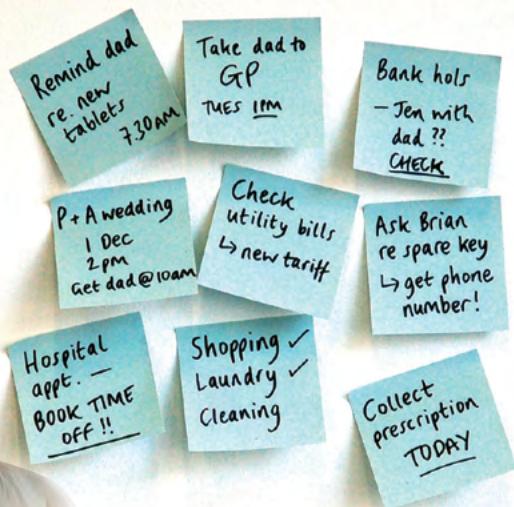 Remind dad
re. new
tablets
7.30AM
Take dad to
GP
TUES 1PM
Bank hols
– Jen with
dad ??
CHECK
P + A wedding
1 Dec
2pm
Get dad@10am
Check
utility bills
↳ new tariff
Ask Brian
re spare key
↳ get phone
number!
Hospital
appt. —
BOOK TIME
OFF!!
Shopping ✓
Laundry ✓
Cleaning
Collect
prescription
TODAY